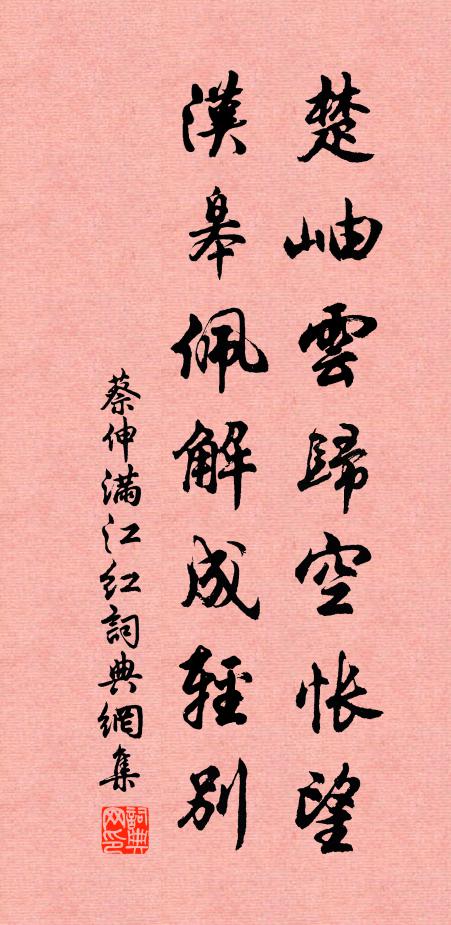 楚岫雲歸空悵望
漢皋佩解成輕別
蔡伸滿江红詞典網集
詞典网印